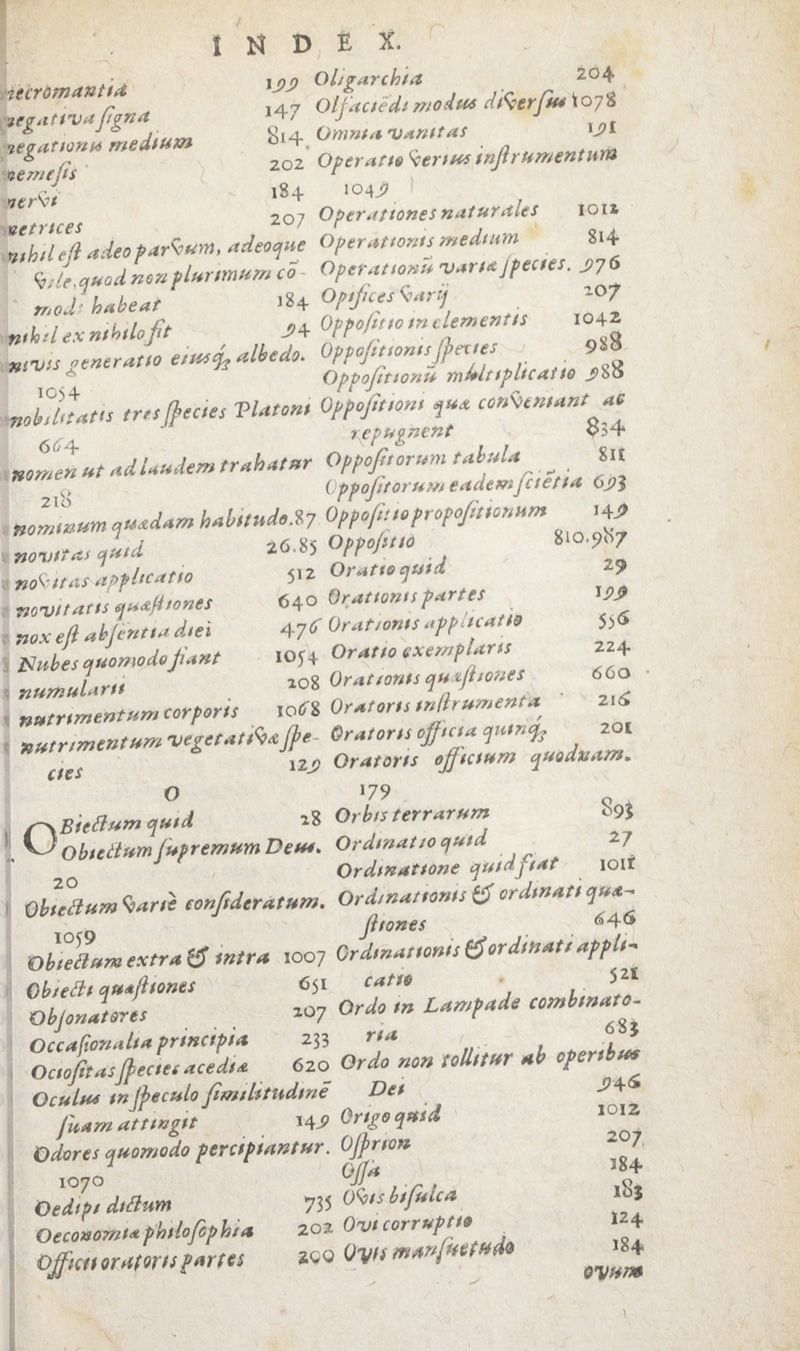 INDEX.
necromantia 199
negativa ſigna 147
negationis medium 814
nemeſis 202
nervi 184
netrices 207
nihil eſt adeo parvum, adeoque
vile, quod non plurimum cō-
modi habeat 184
nihil ex nihilo fit 94
nivis generatio eiusq; albedo.
1054
nobilitatis tres ſpecies Platoni
664
nomen ut ad laudem trahatur
218
nominum quædam habitudo. 87
novitas quid 26.85
novitas applicatio 512
novitatis quæſtiones 640
nox eſt abſentia diei 476
Nubes quomodo fiant 1054
numularii 208
nutrimentum corporis 1068
nutrimentum vegetativæ ſpe-
cies 129
O
OBiectum quid 28
Obiectum ſupremum Deus.
20
Obiectum variè conſideratum.
1059
Obiectum extra & intra 1007
Obiecti quæſtiones 651
Obſonatores 207
Occaſionalia principia 233
Ocioſitas ſpecies acediæ 620
Oculus in ſpeculo ſimilitudinē
ſuam attingit 149
Odores quomodo percipiantur.
1070
Oedipi dictum 735
Oeconomia philoſophia 202
Officii oratoris partes 200
Oligarchia 204
Olfaciēdi modus diverſus 1078
Omnia vanitas 191
Operatio verius inſtrumentum
1049
Operationes naturales 1012
Operationis medium 814
Operationū variæ ſpecies. 976
Opifices varij 207
Oppoſitio in elementis 1042
Oppoſitionis ſpecies 988
Oppoſitionū multiplicatio 988
Oppoſitioni quæ conveniant ac
repugnent 834
Oppoſitorum tabula 811
Oppoſitorum eadem ſciētia 693
Oppoſitio propoſitionum 149
Oppoſitio 810.987
Oratio quid 29
Orationis partes 199
Orationis applicatio 556
Oratio exemplaris 224
Orationis quæſtiones 660
Oratoris inſtrumenta 216
Oratoris officia quinq; 201
Oratoris officium quodnam.
179
Orbis terrarum 893
Ordinatio quid 27
Ordinatione quid fiat 1011
Ordinationis & ordinati quæ-
ſtiones 646
Ordinationis & ordinati appli-
catio 521
Ordo in Lampade combinato-
ria 683
Ordo non tollitur ab operibus
Dei 946
Origo quid 1012
Oſprion 207
Oſſa 184
Ovis biſulca 183
Ovi corruptio 124
Ovis manſuetudo 184
ovum